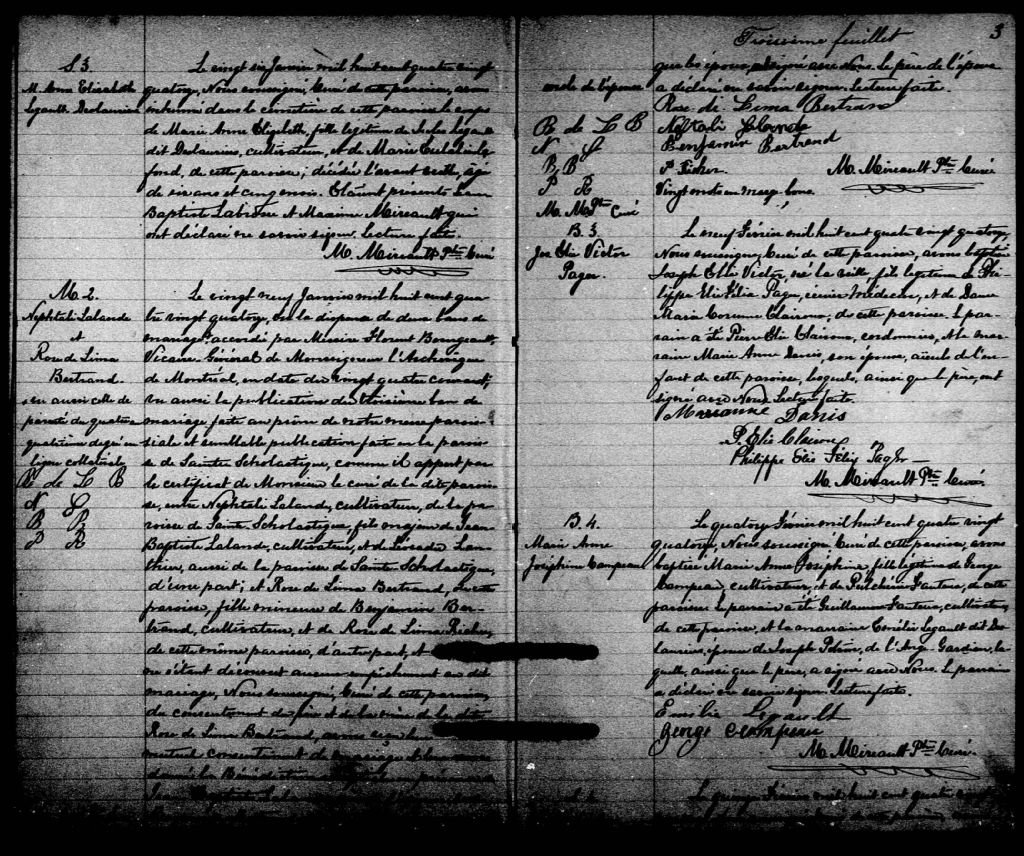 S. 3.
M. Anne Elisabeth
Legault Deslauriers
Le vingt six Janvier mil huit cent quatre vingt
quatorze, Nous soussigné, Curé de cette paroisse, avons
inhumé dans le cimetière de cette paroisse le corps
de Marie Anne Elizabeth, fille légitime de Jules Legault
dit Deslauriers, cultivateur, et de Marie
fond, de cette paroisse, décédée l'avant veille, âgée
de six ans et cinq mois. Étaient présents Jean
Baptiste Labrosse et Maxime Mireault qui
ont déclaré ne savoir signer. Lecture faite.
M. Mireault Ptre Curé
M. 2.
Nephtali Lalande
et
Rose de Lima
Bertrand.
vu aussi celle de
parenté du quatre
quatrième degré en
ligne collatérale
R de L B
N L
B B
P R
Le vingt neuf Janvier mil huit cent qua-
tre vingt quatorze, vu la dispense de deux bans de
mariage accordée par Messire Florent Bourgeault,
Vicaire-Général de Monseigneur l'Archevêque
de Montréal, en date du vingt quatre courant,
vu aussi la publication du troisième ban de
mariage faite au prône de notre messe parois-
siale et semblable publication faite en la parois-
se de Sainte Scholastique, comme il appert par
le certificat de Monsieur le curé de la dite parois-
se, entre Nephtali Lalande, cultivateur, de la pa-
roisse de Sainte Scholastique, fils majeur de Jean
Baptiste Lalande, cultivateur, et de Lan-
thier, aussi de la paroisse de Sainte Scholastique,
d'une part; et Rose de Lima Bertrand, de cette
paroisse, fille mineure de Benjamin Ber-
trand, cultivateur, et de Rose de Lima Richer,
de cette même paroisse, d'autre part, et
ne s'étant découvert aucun empêchement au dit
mariage, Nous soussigné, Curé de cette paroisse,
du consentement du père et de la mère de la dite
Rose de Lima Bertrand, avons reçu le
mutuel consentement de mariage et leur avons
donné la Bénédiction
Troisième feuillet
3
que les époux, ont signé avec Nous. Le père de l'époux
a déclaré ne savoir signer. Lecture faite.
oncle de l'épouse
Rose de Lima Bertrand
R de L B
Neftali Lalande
N L
Benjamin Bertrand
B B
P. Richer
M. Mireault Ptre Curé
P R
Vingt mots en marge bons.
M. M. Ptre Curé
B. 3.
Jos Elie Victor
Pager
Le neuf Février mil huit cent quatre vingt quatorze,
Nous soussigné, Curé de cette paroisse, avons baptisé
Joseph Elie Victor né la veille fils légitime de Phi-
lippe Elie Félix Páger, écuier médecin, et de Dame
Marie Corinne Clairoux, de cette paroisse. Le par-
rain a été Pierre Elie Clairoux, cordonnier, et la mar-
raine Marie Anne Danis, son épouse, aïeuls de l'en-
fant de cette paroisse, lesquels, ainsi que le père, ont
signé avec Nous. Lecture faite.
Marianne Danis
P. Elie Clairou
Philippe Elie Félix Pager
M. Mireault Ptre Curé
B. 4.
Marie Anne
Joséphine Campeau
Le quatorze Février mil huit cent quatre vingt
quatorze, Nous soussigné Curé de cette paroisse, avons
baptisé Marie Anne Joséphine, fille légitime de George
Campeau, cultivateur, et de Pulchérie Fauteux, de cette
paroisse. Le parrain a été Guillaume Fauteux, cultivateur,
de cette paroisse, et la marraine Emélie Legault dit Des-
lauriers, épouse de Joseph de l'Ange-Gardien, la-
quelle, ainsi que le père, a signé avec Nous. Le parrain
a déclaré ne savoir signer. Lecture faite.
Emélie Legault
George Campeau
M. Mireault Ptre Curé
Le quinze Février mil huit cent quatre vingt